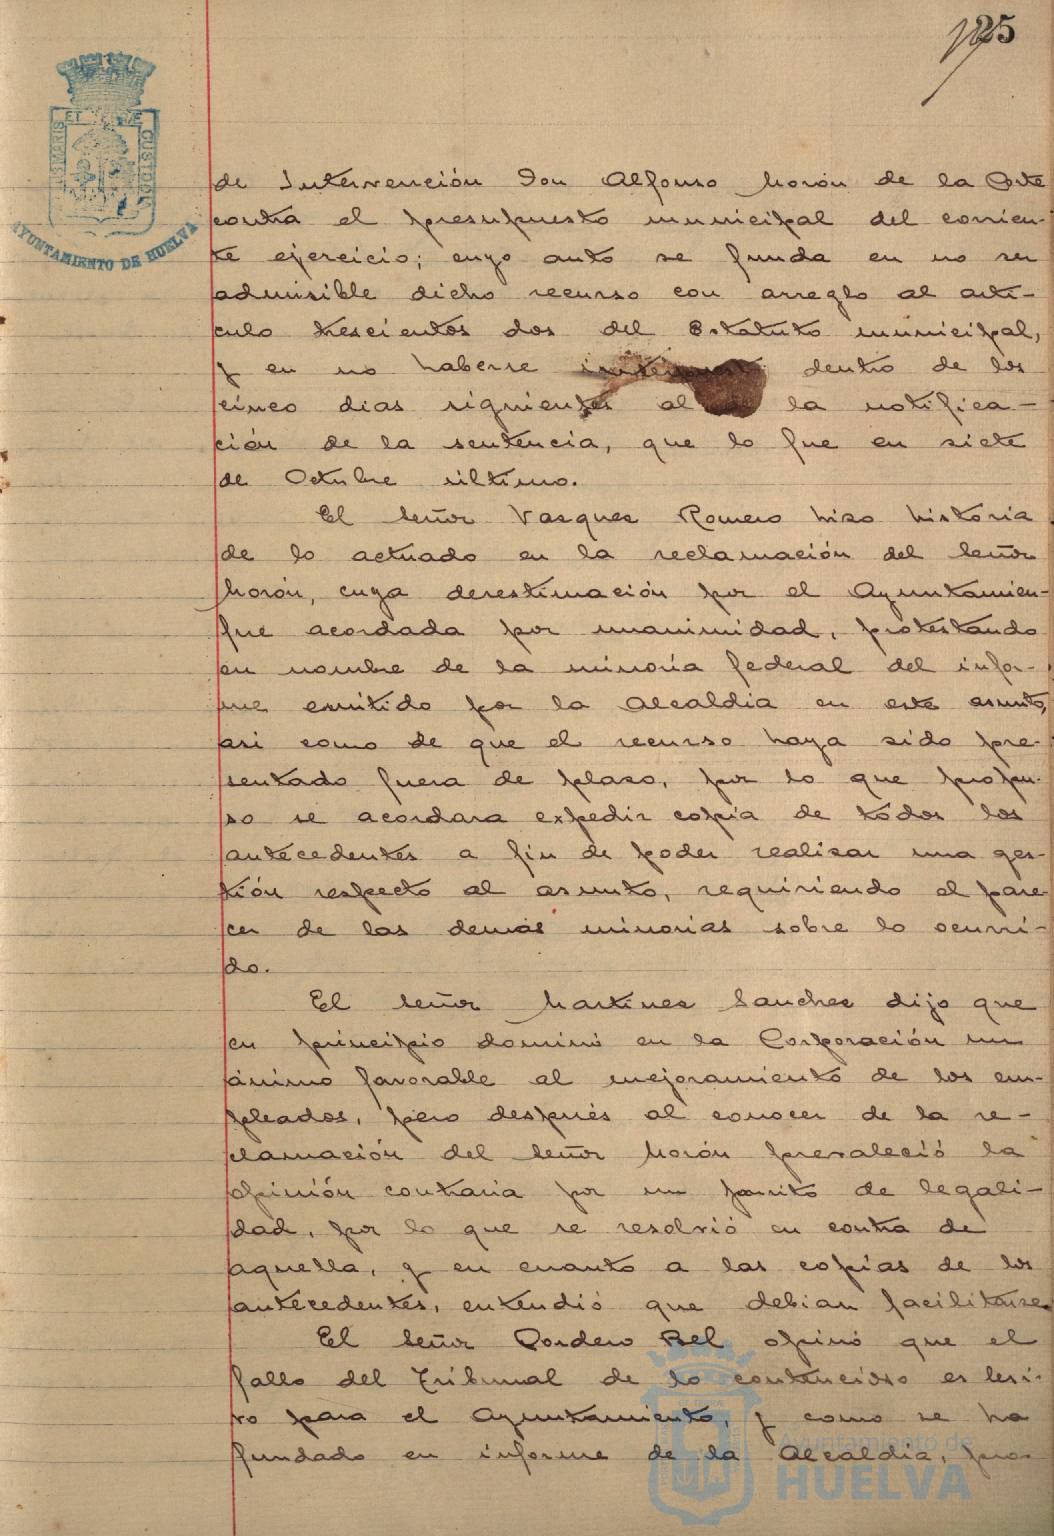 125
PORTUS MARIS ET TERRAE CUSTODIA
AYUNTAMIENTO DE HUELVA
de Intervención Don Alfonso Morón de la Corte
contra el presupuesto municipal del corrien-
te ejercicio; cuyo auto se funda en no ser
admisible dicho recurso con arreglo al artí-
culo trescientos dos del Estatuto municipal,
y en no haberse interpuesto dentro de los
cinco dias siguientes al de la notifica-
ción de la sentencia, que lo fue en siete
de Octubre último.
El Señor Vasquez Romero hizo historia
de lo actuado en la reclamación del Señor
Morón, cuya desestimación por el Ayuntamien-
fue acordada por unanimidad, protestando
en nombre de la minoria federal del infor-
me emitido por la Alcaldia en este asunto,
asi como de que el recurso haya sido pre-
sentado fuera de plaso, por lo que propu-
so se acordara expedir copia de todos los
antecedentes a fin de poder realisar una ges-
tión respecto al asunto, requiriendo el pare-
cer de las demás minorias sobre lo ocurri-
do.
El señor Martines Sanchez dijo que
en principio dominó en la Corporación un
ánimo favorable al mejoramiento de los em-
pleados, pero después al conocer de la re-
clamación del Señor Morón prevaleció la
opinión contraria por un prurito de legali-
dad, por lo que se resolvió en contra de
aquella, y en cuanto a las copias de los
antecedentes, entendió que debian facilitarse.
El Señor Cordero Bel opinó que el
fallo del Tribunal de lo contencioso es lesi-
vo para el Ayuntamiento, y como se ha
fundado en informe de la Alcaldia, pro-
Ayuntamiento de
HUELVA